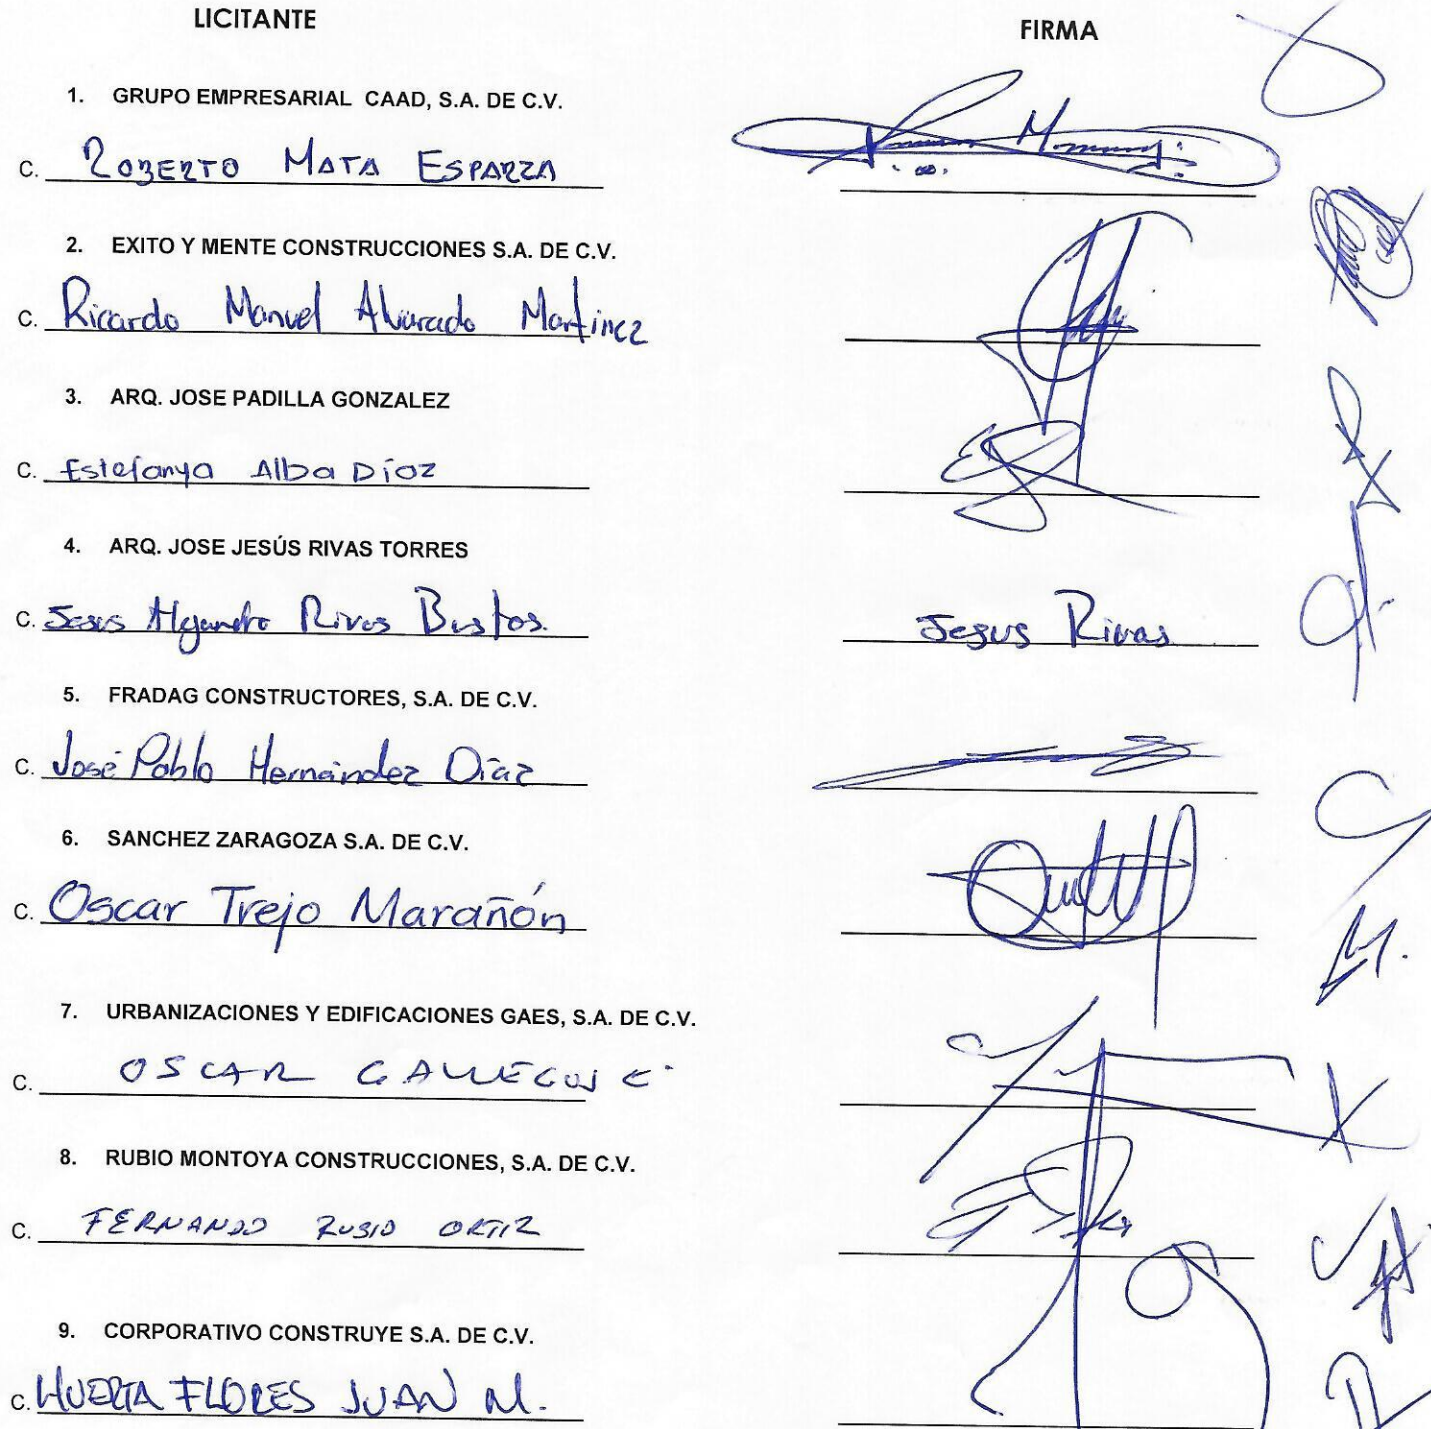 LICITANTE FIRMA
1. GRUPO EMPRESARIAL CAAD, S.A. DE C.V.
C. ROBERTO MATA ESPARZA
2. EXITO Y MENTE CONSTRUCCIONES S.A. DE C.V.
C. Ricardo Manuel Alvarado Martinez
3. ARQ. JOSE PADILLA GONZALEZ
C. Estefanya Alba Díaz
4. ARQ. JOSE JESÚS RIVAS TORRES
C. Jesus Alejandro Rivas Bustos. Jesus Rivas
5. FRADAG CONSTRUCTORES, S.A. DE C.V.
C. José Pablo Hernández Díaz
6. SANCHEZ ZARAGOZA S.A. DE C.V.
C. Oscar Trejo Marañón
7. URBANIZACIONES Y EDIFICACIONES GAES, S.A. DE C.V.
C. OSCAR GALLEGOS E.
8. RUBIO MONTOYA CONSTRUCCIONES, S.A. DE C.V.
C. FERNANDO RUBIO ORTIZ
9. CORPORATIVO CONSTRUYE S.A. DE C.V.
C. HUERTA FLORES JUAN M.